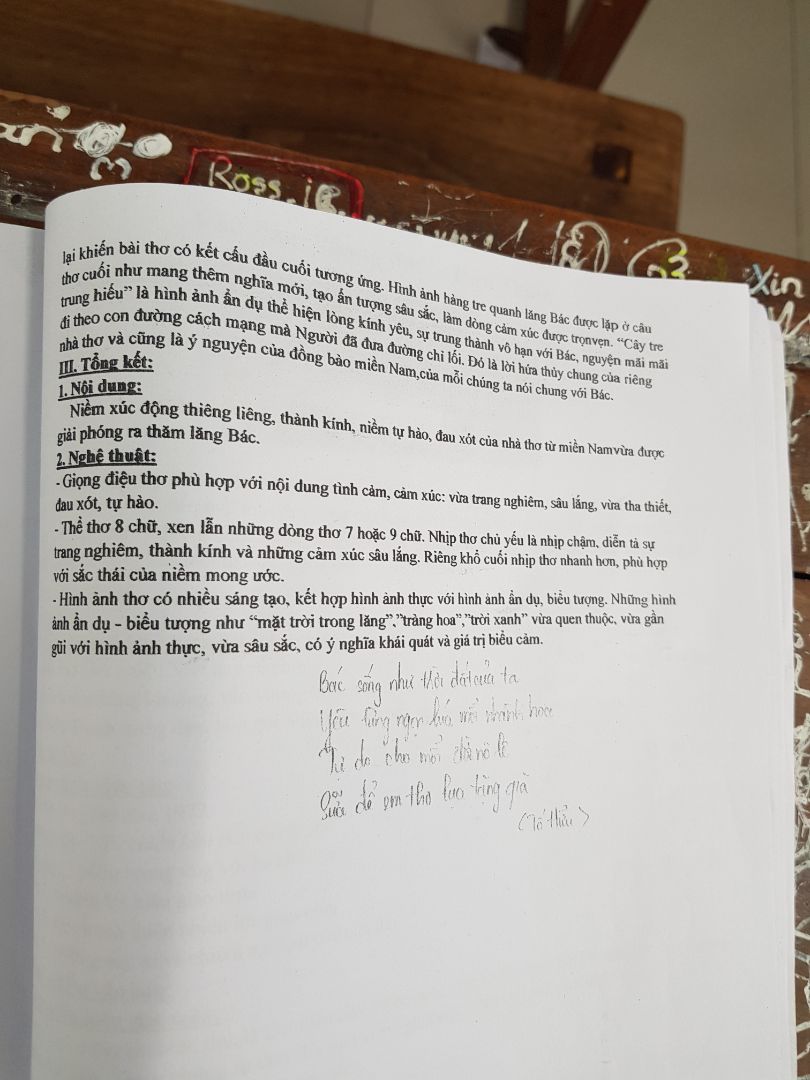 an
Ross
Xin
lại khiến bài thơ có kết cấu đầu cuối tương ứng. Hình ảnh hàng tre quanh lăng Bác được lặp ở câu
thơ cuối như mang thêm nghĩa mới, tạo ấn tượng sâu sắc, làm dòng cảm xúc được trọnvẹn. “Cây tre
trung hiếu” là hình ảnh ẩn dụ thể hiện lòng kính yêu, sự trung thành vô hạn với Bác, nguyện mãi mãi
đi theo con đường cách mạng mà Người đã đưa đường chỉ lối. Đó là lời hứa thủy chung của riêng
nhà thơ và cũng là ý nguyện của đồng bào miền Nam,của mỗi chúng ta nói chung với Bác.
III. Tổng kết:
1. Nội dung:
Niềm xúc động thiêng liêng, thành kính, niềm tự hào, đau xót của nhà thơ từ miền Namvừa được
giải phóng ra thăm lăng Bác.
2. Nghệ thuật:
- Giọng điệu thơ phù hợp với nội dung tình cảm, cảm xúc: vừa trang nghiêm, sâu lắng, vừa tha thiết,
đau xót, tự hào.
- Thể thơ 8 chữ, xen lẫn những dòng thơ 7 hoặc 9 chữ. Nhịp thơ chủ yếu là nhịp chậm, diễn tả sự
trang nghiêm, thành kính và những cảm xúc sâu lắng. Riêng khổ cuối nhịp thơ nhanh hơn, phù hợp
với sắc thái của niềm mong ước.
- Hình ảnh thơ có nhiều sáng tạo, kết hợp hình ảnh thực với hình ảnh ẩn dụ, biểu tượng. Những hình
ảnh ẩn dụ – biểu tượng như “mặt trời trong lăng”,”tràng hoa”,”trời xanh” vừa quen thuộc, vừa gần
gũi với hình ảnh thực, vừa sâu sắc, có ý nghĩa khái quát và giá trị biểu cảm.
Bác sống như trời đất của ta
Yêu từng ngọn lúa mỗi nhành hoa
Tự do cho mỗi đời nô lệ
Sữa để em thơ lụa tặng già
(Tố Hữu)